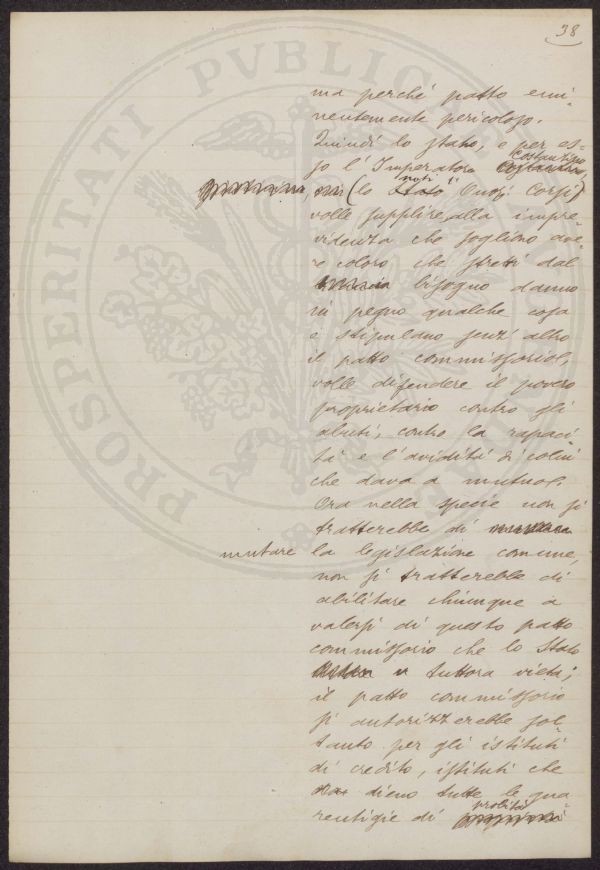 38
PROSPERITATI PVBLICAE
ma perché patto emi-
nentemente pericoloso.
Quindi lo stato, e per es-
so l'Imperatore Costantino
(lo noti l'On. Corsi)
volle supplire alla impre-
videnza che sogliono ave-
re coloro che stretti dal
bisogno danno
in pegno qualche cosa
e stipulano senz'altro
il patto commissorio,
volle difendere il povero
proprietario contro gli
abusi, contro la rapaci-
tà e l'avidità di colui
che dava a mutuo.
Ora nella specie non si
tratterebbe di
mutare la legislazione comune,
non si tratterebbe di
abilitare chiunque a
valersi di questo patto
commissorio che lo Stato
tuttora vieta;
il patto commissorio
si autorizzerebbe sol-
tanto per gli istituti
di credito, istituti che
dieno tutte le gua-
rentigie di probità